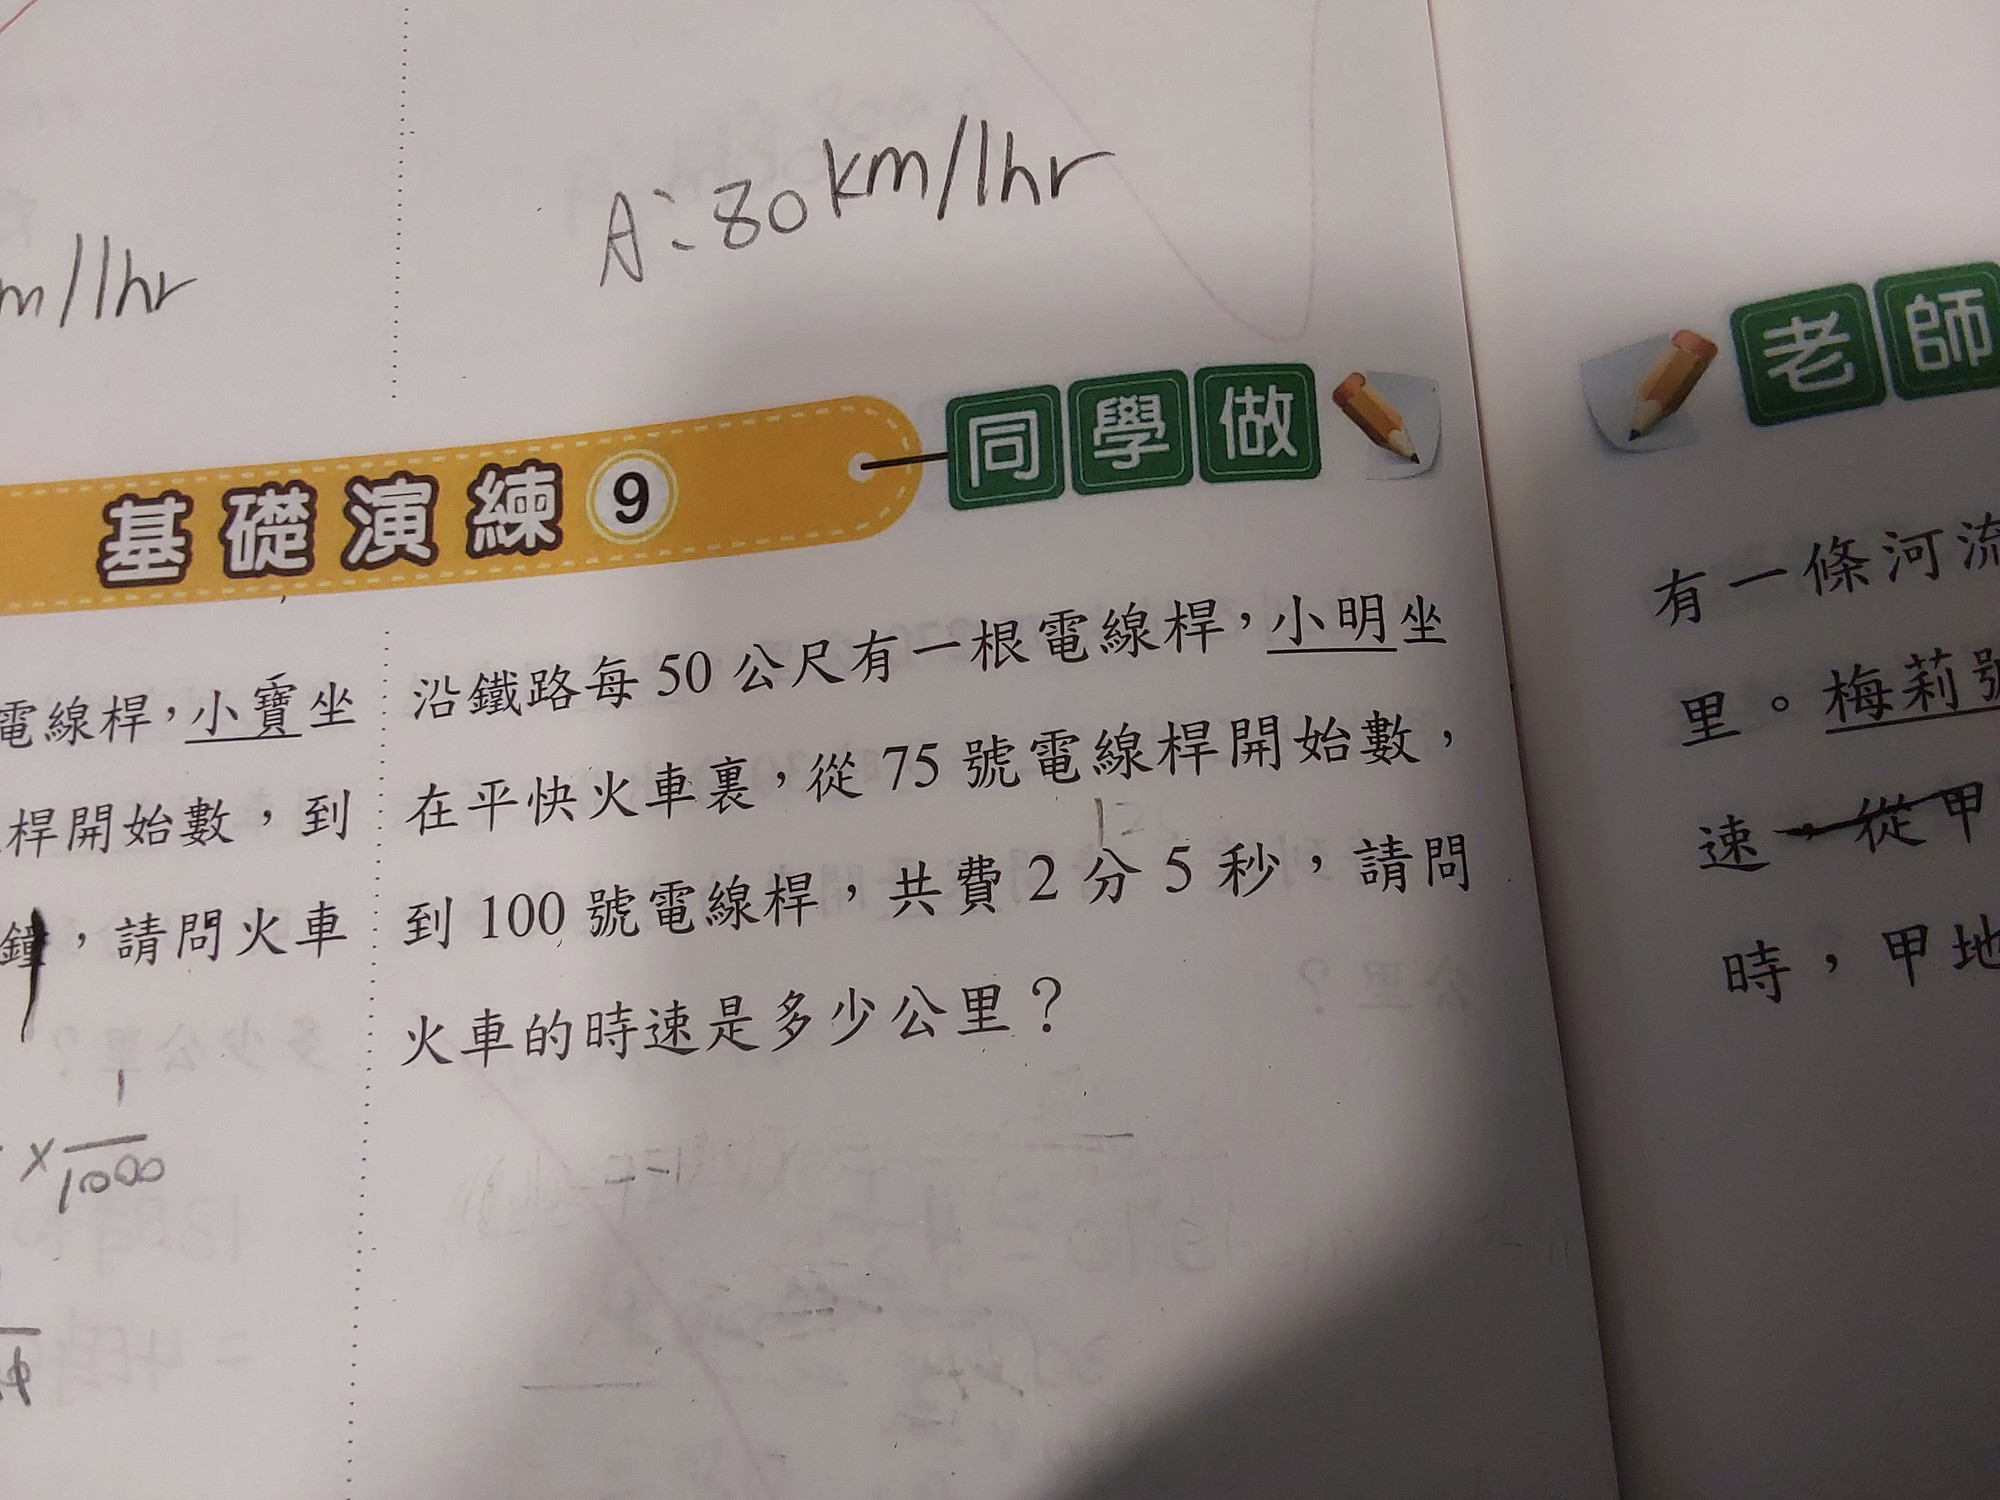 A:80km/1hr
m/1hr
基礎演練9 同學做
電線桿，小寶坐
桿開始數，到
鐘，請問火車
×1/1000
沿鐵路每50公尺有一根電線桿，小明坐
在平快火車裏，從75號電線桿開始數，
到100號電線桿，共費2分5秒，請問
火車的時速是多少公里？
老師
有一條河流
里。梅莉號
速，從甲
時，甲地